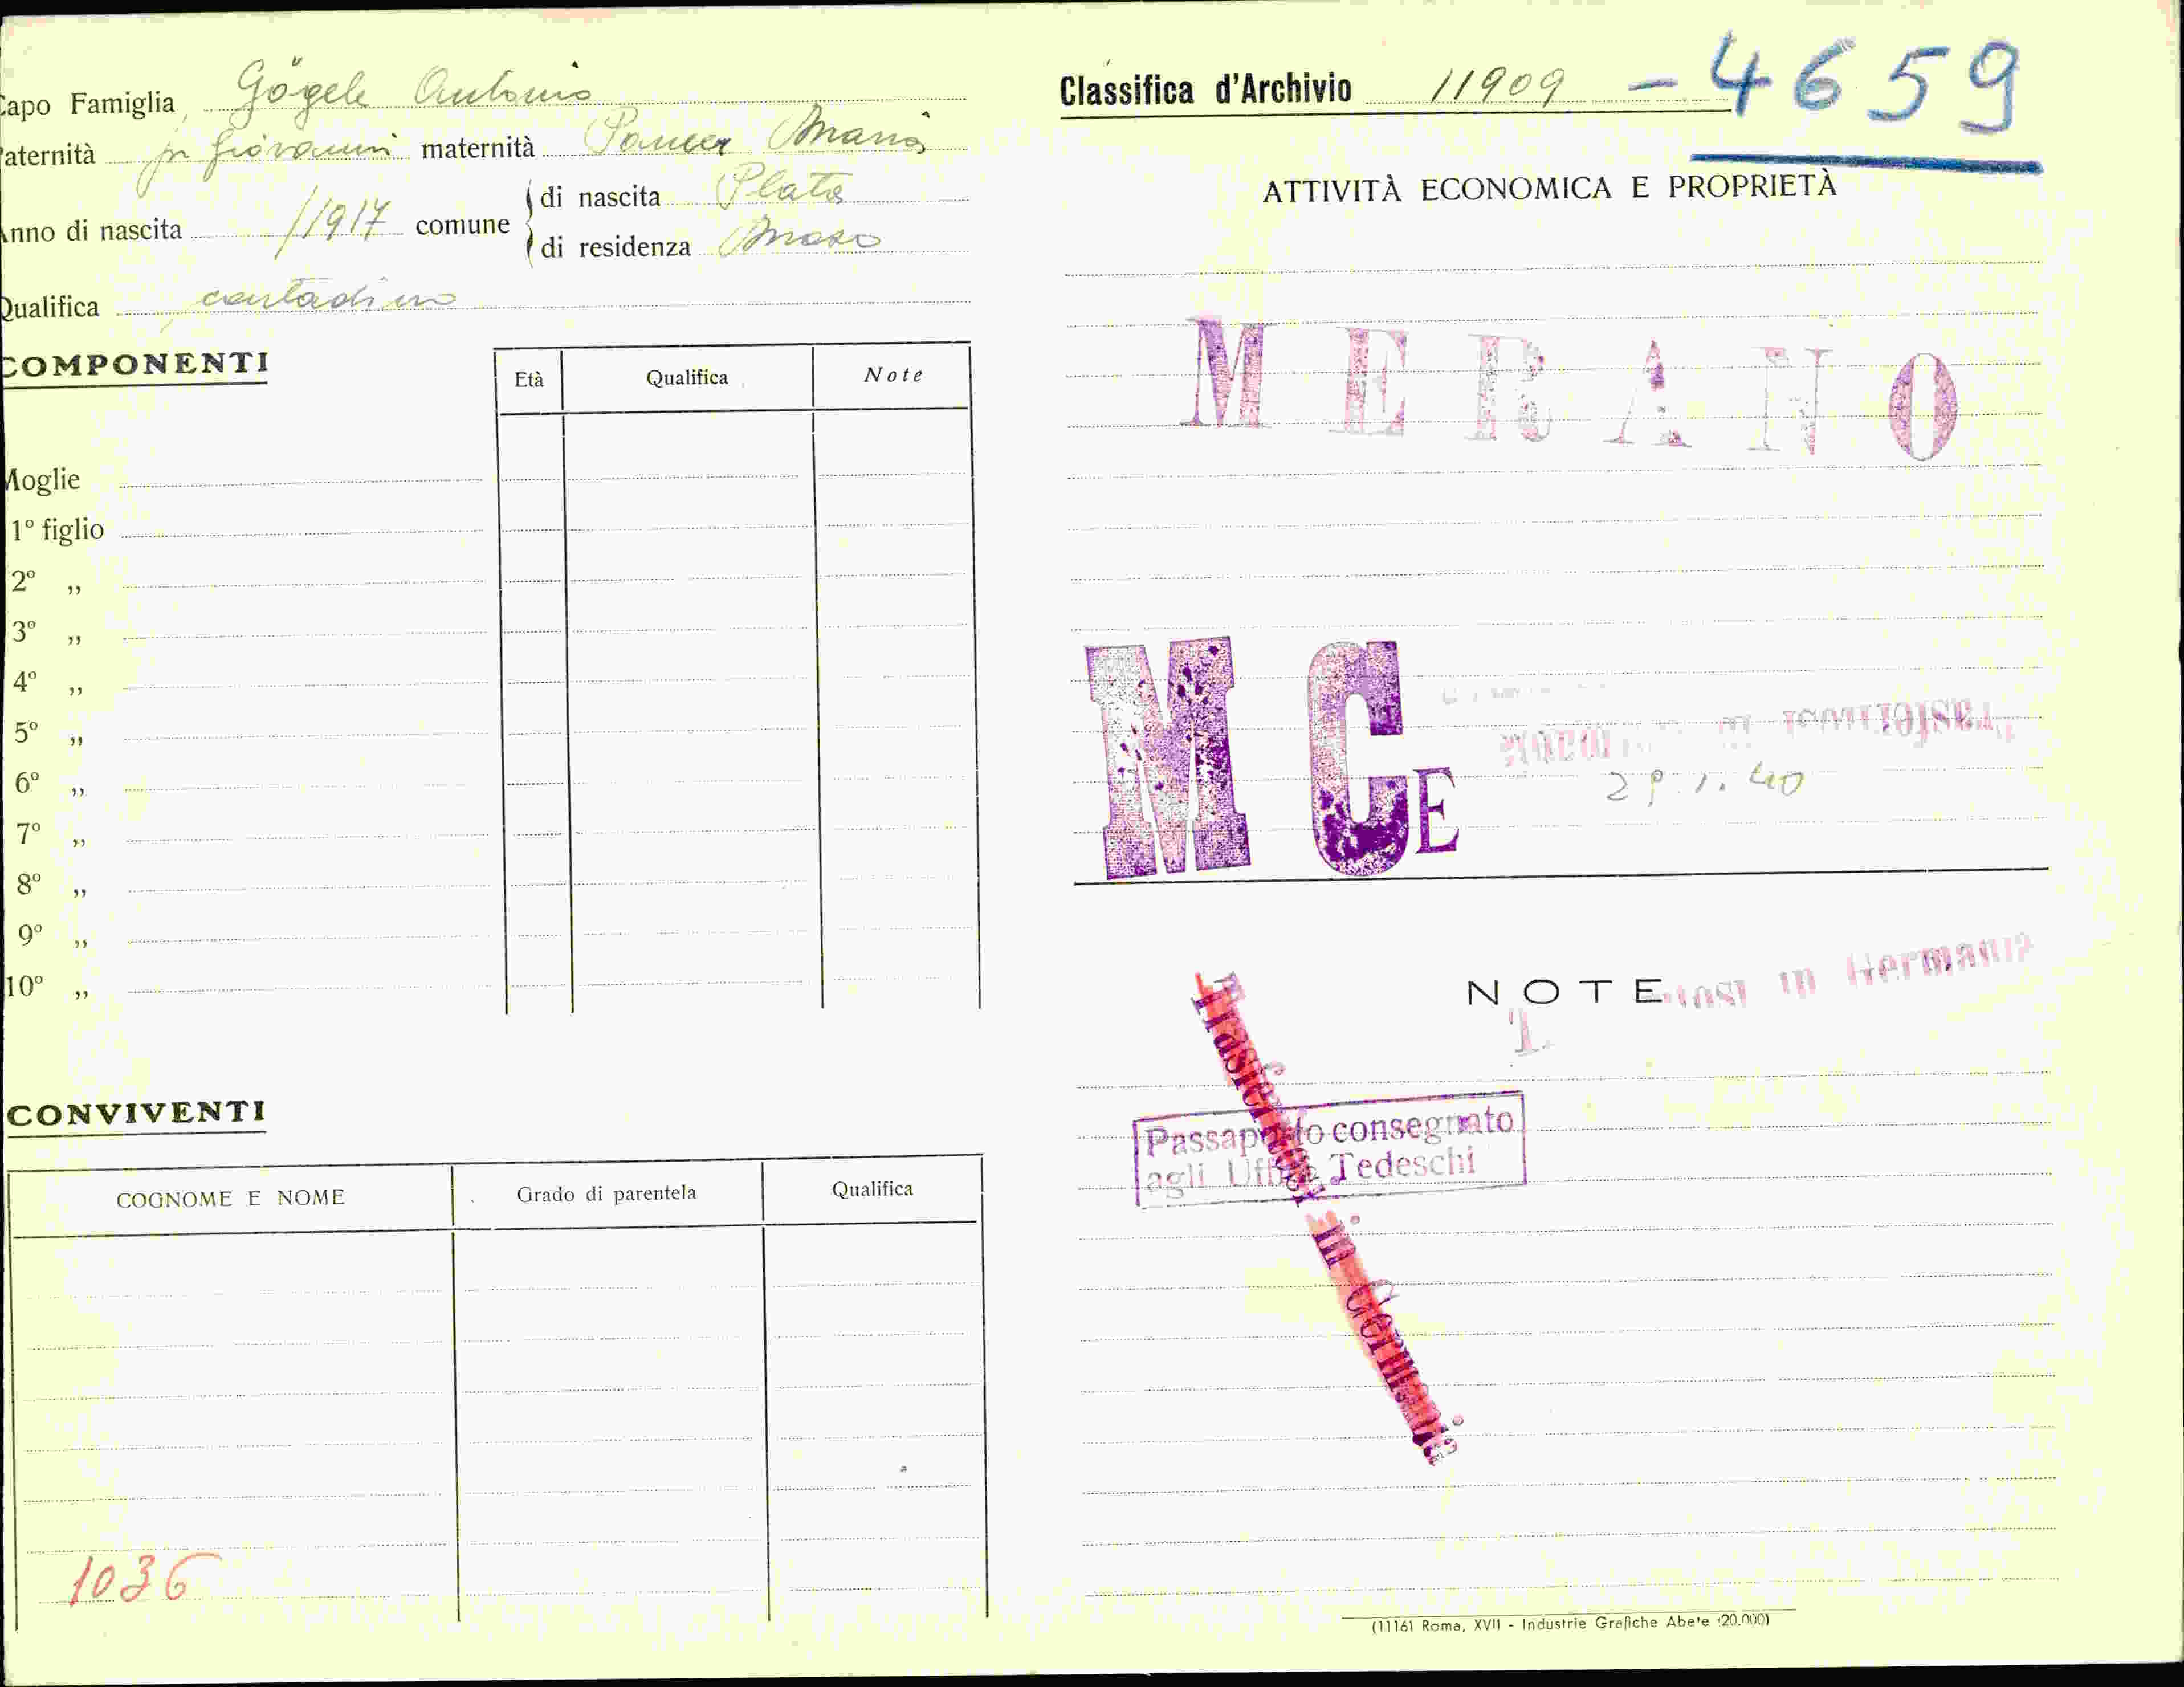 Capo Famiglia Gögele Antonio
Paternità fu Giovanni maternità Maria
Anno di nascita 1917 comune di nascita Plata
di residenza Moso
Qualifica contadino
COMPONENTI
Età Qualifica Note
Moglie
1° figlio
2° ,,
3° ,,
4° ,,
5° ,,
6° ,,
7° ,,
8° ,,
9° ,,
10° ,,
CONVIVENTI
COGNOME E NOME Grado di parentela Qualifica
1036
Classifica d'Archivio 11909 - 4659
ATTIVITÀ ECONOMICA E PROPRIETÀ
MERANO
M C E
29.1.40
NOTE
in Germania
Passaporto consegnato
agli Uffici Tedeschi
Trasferitosi in Germania
(11161 Roma, XVII - Industrie Grafiche Abete (20.000)